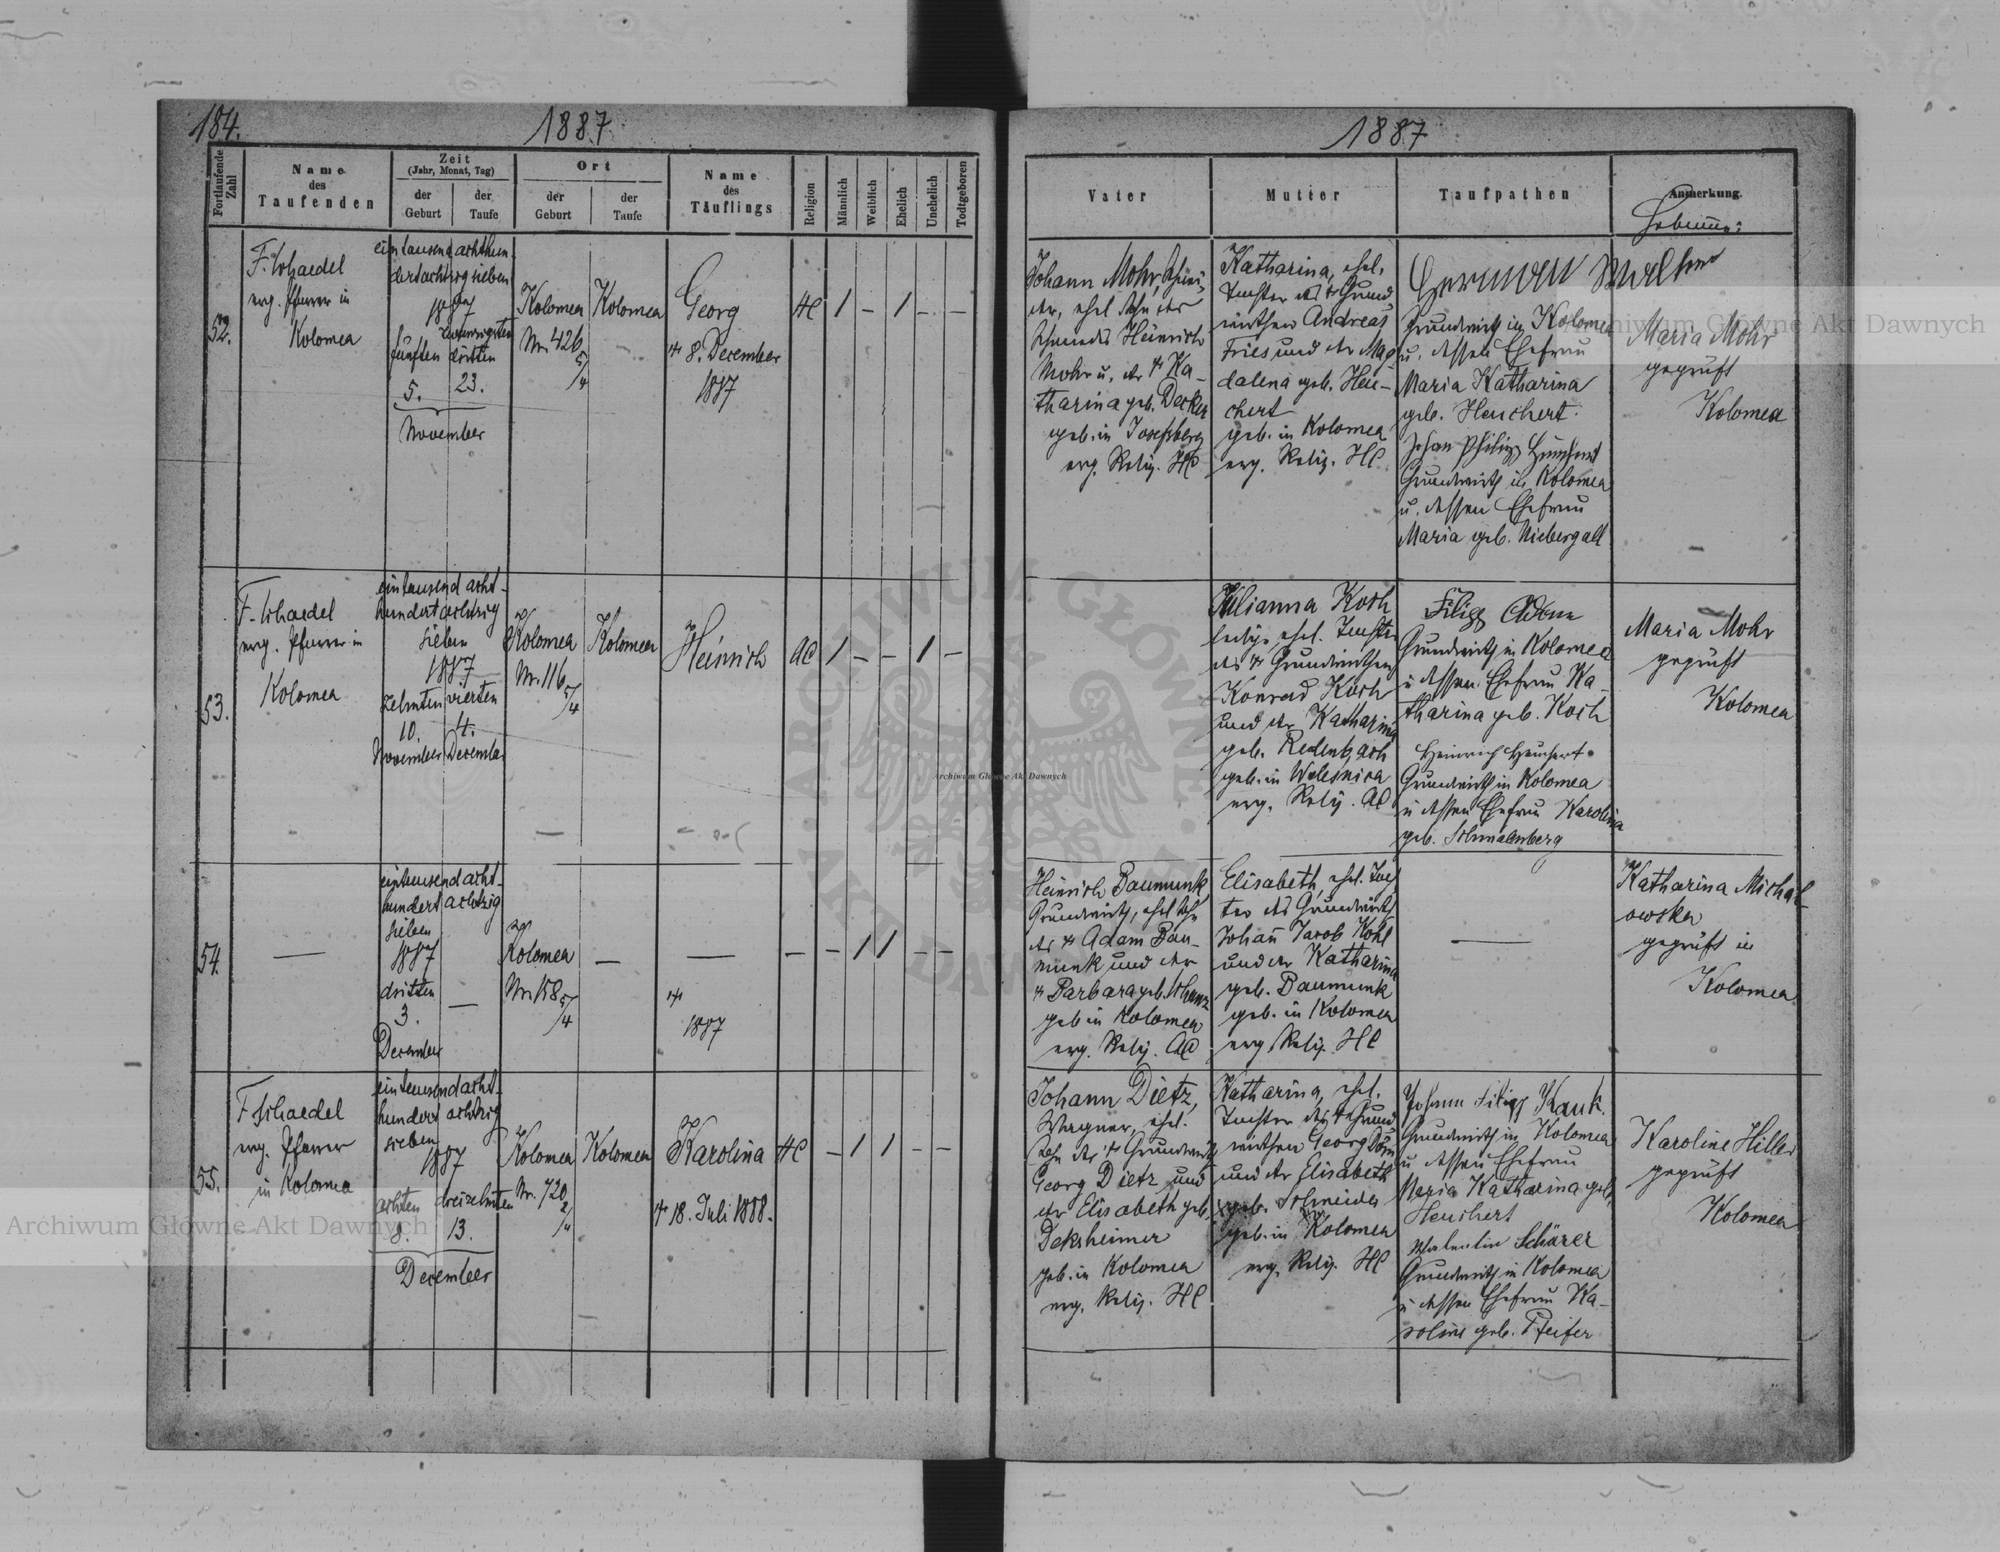 184.
1887.
Fortlaufende Zahl
Name des Taufenden
Zeit
(Jahr, Monat, Tag)
der Geburt
der Taufe
Ort
der Geburt
der Taufe
Name des Täuflings
Religion
Männlich
Weiblich
Ehelich
Unehelich
Todtgeboren
52.
F. Schaedel
evg. Pfarrer in
Kolomea
eintausend achthun-
dertachtzig sieben
1887
fünften
zwanzigsten
dritten
5.
23.
November
Kolomea
Nr. 426
5/4
Kolomea
Georg
8. December
1887
HC
/ - / - -
53.
F. Schaedel
evg. Pfarrer in
Kolomea
eintausend acht-
hundert achtzig
sieben
1887
zehnten vierten
10. 4.
November December
Kolomea
Nr. 116
5/4
Kolomea
Heinrich
AC
/ - - / -
54.
—
eintausend acht-
hundert achtzig
sieben
1887
dritten
3. —
December
Kolomea
Nr. 158
5/4
—
—
1887
- - / / - -
55.
F. Schaedel
evg. Pfarrer
in Kolomea
eintausend acht-
hundert achtzig
sieben
1887
achten dreizehnten
8. 13.
December
Kolomea
Nr. 720
2/4
Kolomea
Karolina
18. Juli 1888.
HC
- / / - -
1887
Vater
Mutter
Taufpathen
Anmerkung.
Hebamme:
Johann Mohr,
der, ehel. Sohn des
Schmieds Heinrich
Mohr u. der Ka-
tharina geb. Decker
geb. in Josefsberg
evg. Relig. HC
Katharina, ehel.
Tochter des Grund-
wirthen Andreas
Fries und der Mag-
dalena geb. Heu-
chert
geb. in Kolomea
evg. Relig. HC
Herman
Grundwirth in Kolomea
u. dessen Ehefrau
Maria Katharina
geb. Heuchert.
Johan Philipp Heuchert
Grundwirth in Kolomea
u. dessen Ehefrau
Maria geb. Niebergall
Maria Mohr
geprüft
Kolomea
Julianna Koch
ledige ehel. Tochter
des Grundwirthen
Konrad Koch
und der Katharina
geb. Redenbach
geb. in
evg. Relig. AC
Filipp Adam
Grundwirth in Kolomea
u dessen Ehefrau Ka-
tharina geb. Koch
Heinrich Heuchert
Grundwirth in Kolomea
u dessen Ehefrau Karolina
geb. Schmalenberg
Maria Mohr
geprüft
Kolomea
Heinrich Baumunk
Grundwirth, ehel Sohn
des Adam Bau-
munk und der
Barbara geb.
geb in Kolomea
evg. Relig. AC
Elisabeth, ehel. Toch
ter des Grundwirth
Johañ Jacob Kohl
und der Katharina
geb. Baumunk
geb. in Kolomea
evg Relig. HC
—
Katharina Michal-
owska
geprüft in
Kolomea
Johann Dietz,
Wagner, ehel.
Sohn des Grundwirth
Georg Dietz und
der Elisabeth geb.
Deksheimer
geb. in Kolomea
evg. Relig. HC
Katharina, ehel.
Tochter des Grund
wirthen Georg
und der Elisabeth
geb. Schneider
geb. in Kolomea
evg. Relig. HC
Johann Filipp Kauk.
Grundwirth in Kolomea
u dessen Ehefrau
Maria Katharina geb.
Heuchert
Valentin Schärer
Grundwirth in Kolomea
u dessen Ehefrau Ka-
roline geb. Pfeifer
Karoline Hiller
geprüft
Kolomea
Archiwum Główne Akt Dawnych
Archiwum Główne Akt Dawnych
Archiwum Główne Akt Dawnych
ARCHIWUM GŁÓWNE AKT DAWNYCH